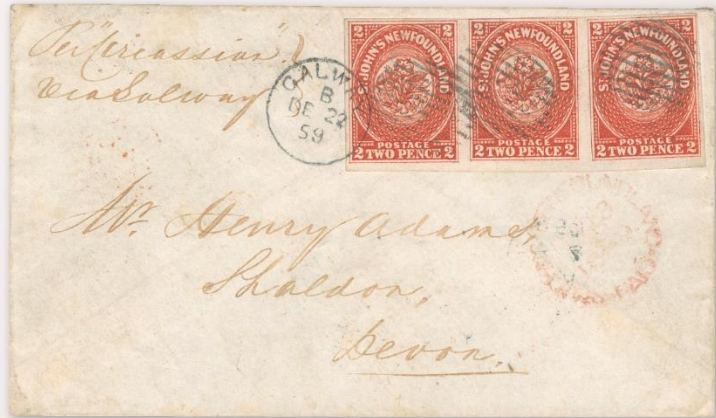 Per "Circassian"
via Galway
GALW
B
DE 22
59
2 2
ST. JOHN'S NEWFOUNDLAND
POSTAGE
2 TWO PENCE 2
2 2
ST. JOHN'S NEWFOUNDLAND
POSTAGE
2 TWO PENCE 2
2 2
ST. JOHN'S NEWFOUNDLAND
POSTAGE
2 TWO PENCE 2
Mr. Henry Adams,
Shaldon,
Devon.
PAID